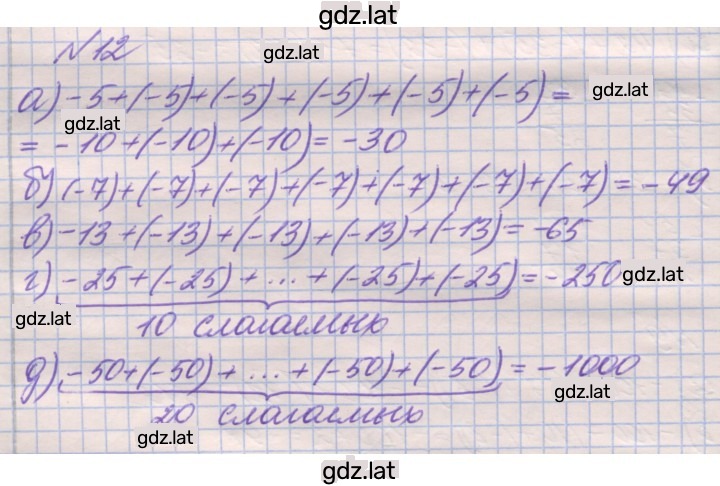 gdz.lat
№ 12
gdz.lat
а) -5+(-5)+(-5)+(-5)+(-5)+(-5)=
gdz.lat
gdz.lat
= -10+(-10)+(-10)= -30
б) (-7)+(-7)+(-7)+(-7)+(-7)+(-7)+(-7)= -49
в) -13+(-13)+(-13)+(-13)+(-13)= -65
г) -25+(-25)+...+(-25)+(-25)= -250
gdz.lat
gdz.lat
10 слагаемых
д) -50+(-50)+...+(-50)+(-50)= -1000
gdz.lat
20 слагаемых
gdz.lat
gdz.lat